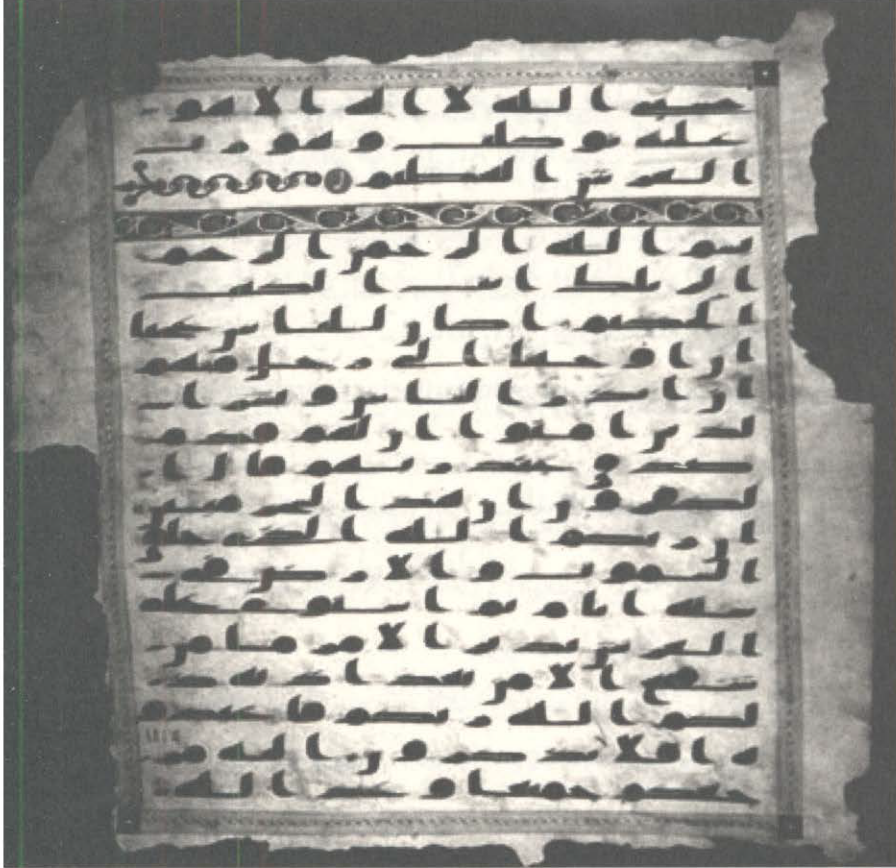 حسبى الله لا اله الا هو
عليه توكلت وهو رب
العرش العظيم
بسم الله الرحمن الرحيم
الر تلك ايت الكتب
الحكيم اكان للناس عجبا
ان اوحينا الى رجل منهم
ان انذر الناس وبشر ا
لذين امنوا ان لهم قدم
صدق عند ربهم قال ا
لكفرون ان هذا لسحر مبين
ان ربكم الله الذى خلق
السموت والارض فى
ستة ايام ثم استوى على
العرش يدبر الامر ما من
شفيع الا من بعد اذنه ذ
لكم الله ربكم فاعبدو
ه افلا تذكرون اليه مر
جعكم جميعا وعد الله